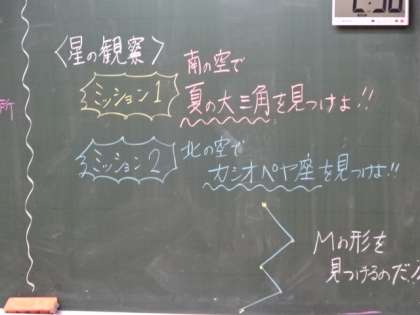 〈星の観察〉
ミッション1
南の空で
夏の大三角を見つけよ!!
ミッション2
北の空で
カシオペヤ座を見つけよ!!
Mの形を
見つけるのだ
所